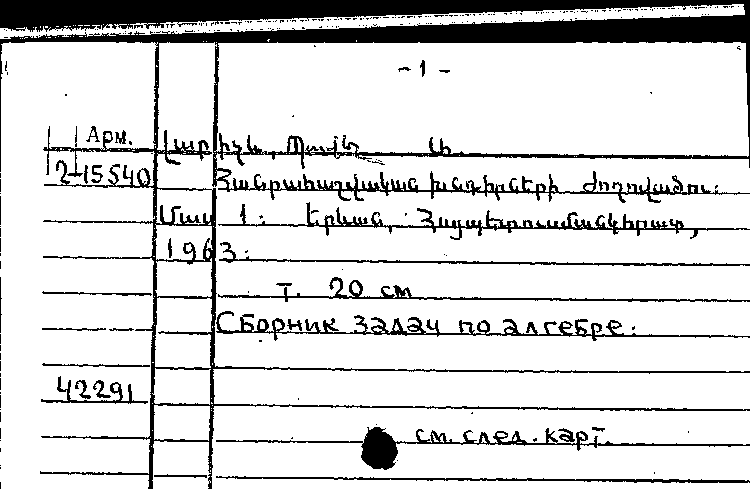 - 1 -
Арм.
Լարիչև, Պավել Ա.
2-15540 Հանրահաշվական խնդիրների ժողովածու:
Մաս 1: Երևան, Հայպետուսմանկհրատ,
1963:
т. 20 см
Сборник задач по алгебре:
42291
см. след. карт.